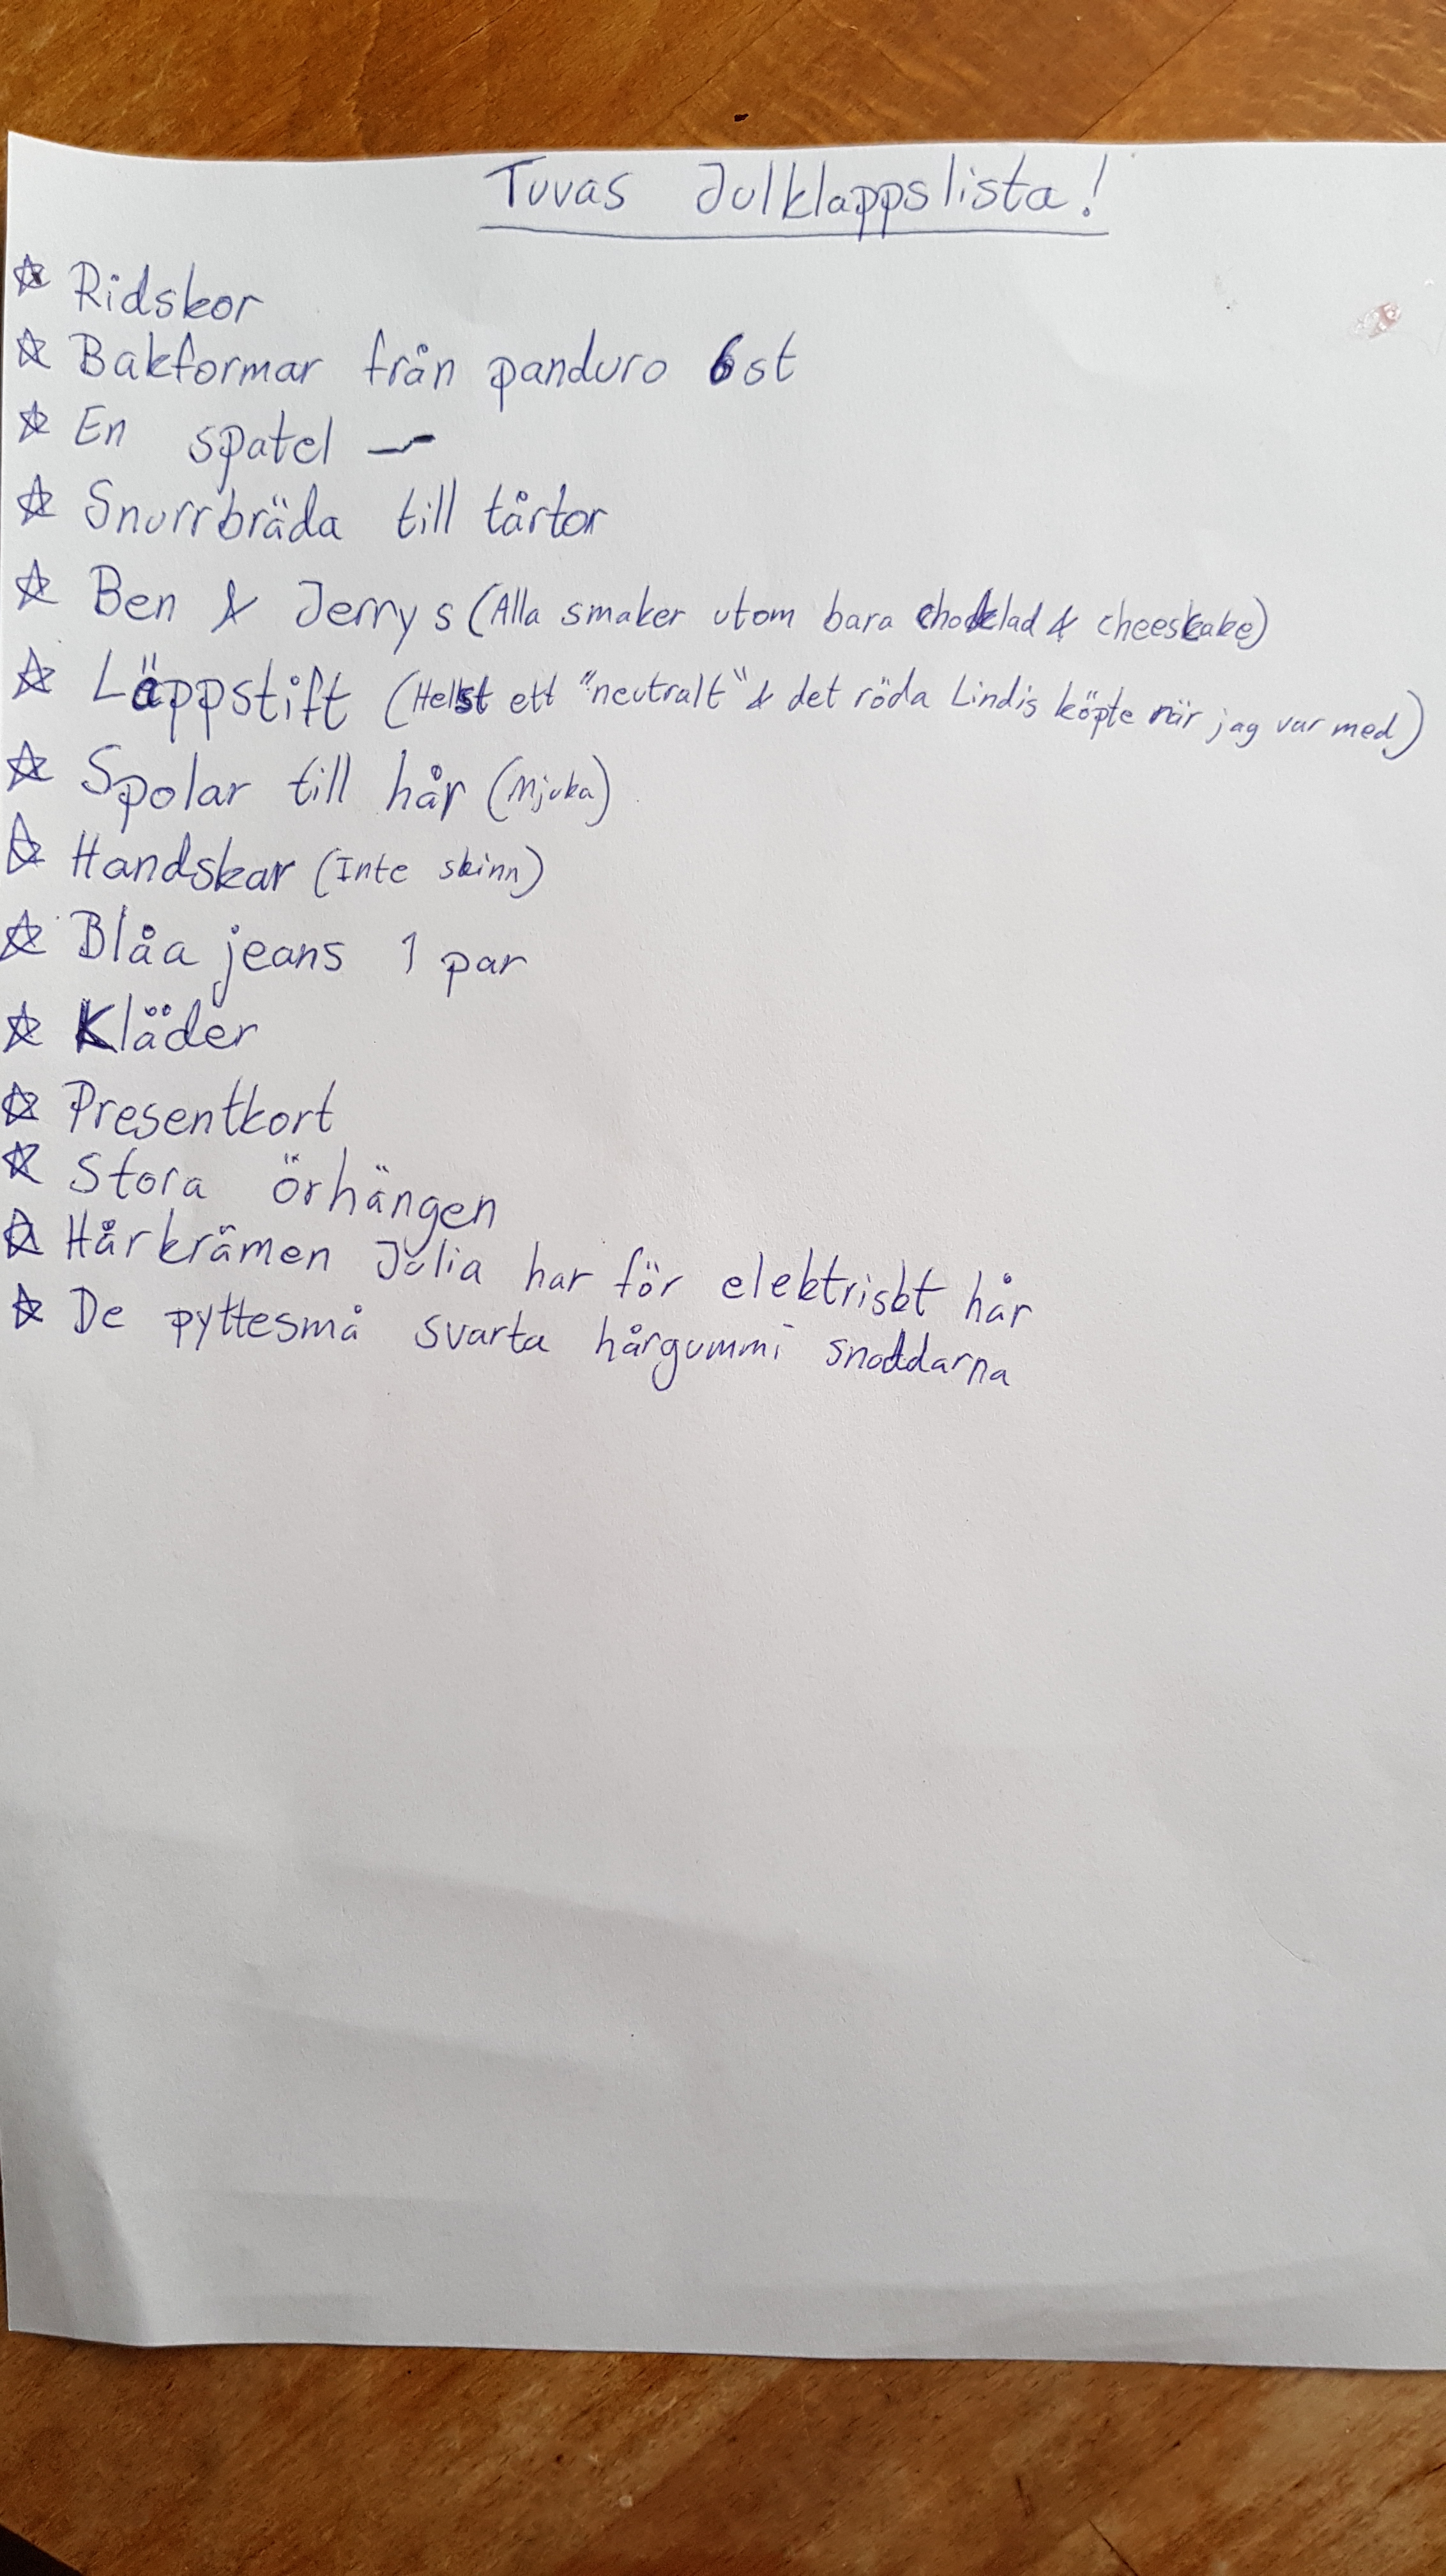 Tuvas Julklappslista!
☆ Ridskor
☆ Bakformar från panduro 6st
☆ En spatel
☆ Snurrbräda till tårtor
☆ Ben & Jerrys (Alla smaker utom bara choklad & cheeskake)
☆ Läppstift (Helst ett "neutralt" & det röda Lindis köpte när jag var med)
☆ Spolar till hår (Mjuka)
☆ Handskar (Inte skinn)
☆ Blåa jeans 1 par
☆ Kläder
☆ Presentkort
☆ Stora örhängen
☆ Hårkrämen Julia har för elektriskt hår
☆ De pyttesmå svarta hårgummi snoddarna